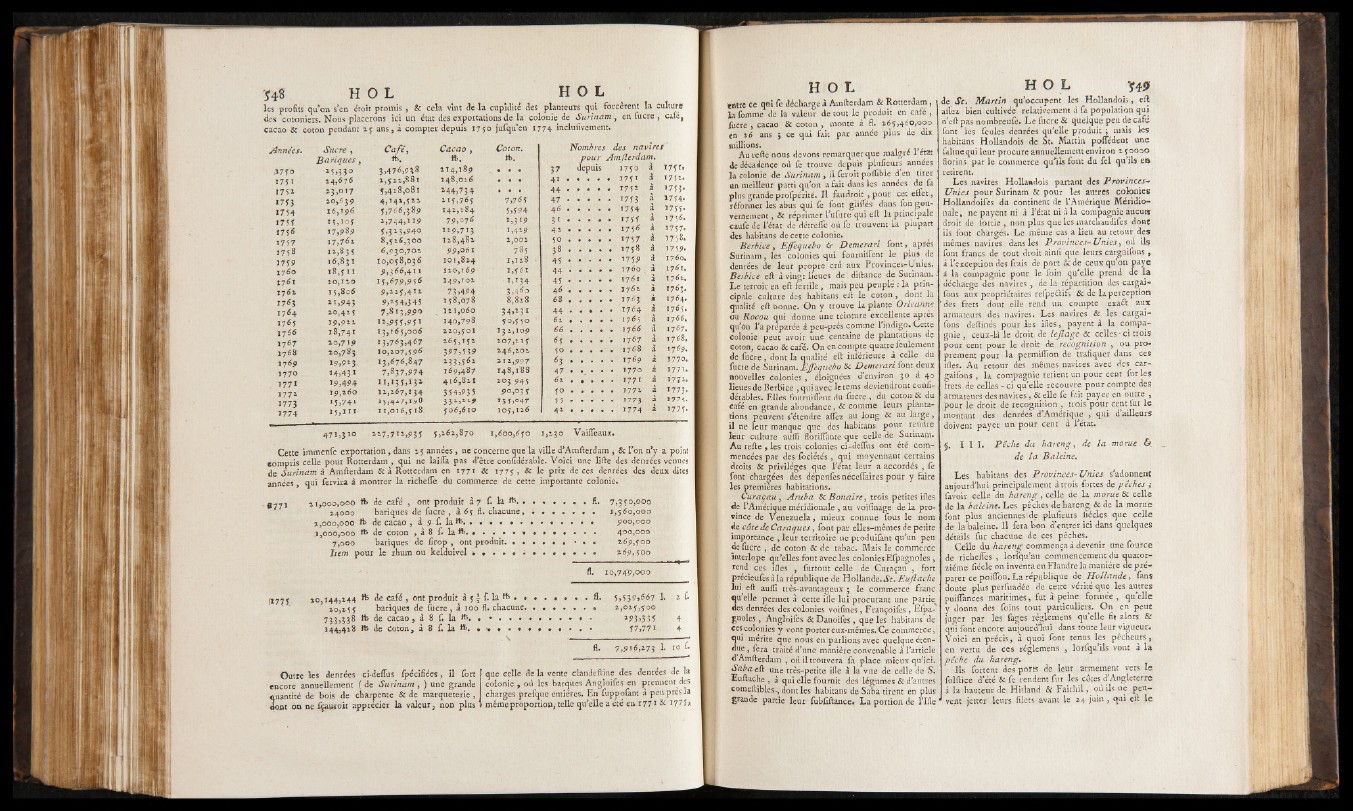 548 HOL HOL
les profits qu'on s'en étoit promis, & cela vint de la cupidité des planteurs qui forcèrent la culture
des cotoniers. Nous placerons ici un état des exportations de la colonie de Surinam, en sucre, café,
cacao & coton pendant 25 ans, à compter depuis 1750 jusqu'en 1774 inclusivement.
Années. Sucre, Café, Cacao, Coton. Nombres des navires
Bariques, ℔. ℔. ℔. pour Amsterdam.
1750 25,330 3,476,038 214,189 . . . 37 depuis 1750 à 1751.
1751 24,676 2,522,881 248,026 . . . 41 . . . . . 1751 à 1752.
1752 23,017 5,428,081 244,734 . . . 44 . . . . . 1752 à 1753.
1753 20,639 4,141,522 215,765 7,765 47 . . . . . 1753 à 1754.
1754 16,196 5,766,389 142,184 5,594 46 . . . . . 1754 à 1755.
1755 15,105 2,744,119 79,076 1,319 31 . . . . . 1755 à 1756.
1756 17,989 5,323,940 129,713 1,429 42 . . . . . 1756 à 1757.
1757 17,762 8,526,300 128,482 2,002 50 . . . . . 1757 à 1758.
1758 12,835 6,030,702 99,061 785 38 . . . . . 1758 à 1759.
1759 16,831 10,058,036 101,824 1,128 45 . . . . . 1759 à 1760.
1760 18,511 9,566,411 120,169 1,561 44 . . . . . 1760 à 1761.
1761 10,120 15,679,956 149,102 1,134 45 . . . . . 1761 à 1762.
1762 15,806 9,225,412 73,404 3,460 46 . . . . . 1762 à 1763.
1763 21,943 9,254,345 158,078 8,828 68 . . . . . 1763 à 1764.
1764 20,425 7,813,990 121,060 34,231 44 . . . . . 1764 à 1765.
1765 19,922 12,955,951 140,798 50,550 62 . . . . . 1765 à 1766.
1766 18,741 13,165,006 220,501 132,109 66 . . . . . 1766 à 1767.
1767 20,719 13,763,467 265,152 207,215 65 . . . . . 1767 à 1768.
1768 20,783 10,207,596 397,539 246,202 50 . . . . . 1768 à 1769.
1769 19,913 13,676,847 233,562 212,997 63 . . . . . 1769 à 1770.
1770 14,431 7,837,974 169,487 148,188 47 . . . . . 1770 à 1771.
1771 19,494 11,135,132 416,821 203,945 62 . . . . . 1771 à 1772.
1772 19,260 12,267,134 354,935 90,035 50 . . . . . 1772 à 1773.
1773 15,741 1773 à 1774.
1774 15,111 11,016,518 506,610 105,126 42 . . . . . 1774 à 1775.
471,310 227,712,935 5,262,870 1,600,650 1,230 Vaisseaux.
Cette immense exportation, dans 25 années, ne concerne que la ville d'Amsterdam, & l'on n'y a point
compris celle pour Rotterdam, qui ne laissa pas d'être considérable. Voici une liste des denrées venues
de Surinam à Amsterdam & à Rotterdam en 1771 & 1775, & le prix de ces denrées des deux dites
années, qui servira à montrer la richesse du commerce de cette importante colonie.
1771 21,000,000 ℔ de café, ont produit à 7 s. la ℔. . . . . . . . fl. 7,350,000
24000 bariques de sucre, à 65 fl. chacune, . . . . . . . 1,560,000
2,000,000 ℔ de cacao, à 9 s. la ℔. . . . . . . . . . . . . 900,000
1,000,000 ℔ de coton, à 8 s. la ℔. . . . . . . . . . . . . 400,000
7,000 bariques de sirop, ont produit. . . . . . . . . . 269,500
Item pour le rhum ou keldvivel . . . . . . . . . . . . 269,500
fl. 10,749,000
1775 20,144,244 ℔ de café, ont produit à 5 ½ s. la ℔. . . . . . . . fl. 5,539,667 l. 2 s.
20,255 bariques de sucre, à 100 fl. chacune. . . . . . . . 2,025,500
733,338 ℔ de cacao, à 8 s. la ℔. . . . . . . . . . . . 293,335 4
144,418 ℔ de coton, à 8 s. la ℔. . . . . . . . . . . . 57,771 4
fl. 7,916,273 l. 10 s.
Outre les denrées ci-dessus spécifiées, il sort
encore annuellement ( de Surinam, ) une grande
quantité de bois de charpente & de marqueterie,
dont on ne sçauroit apprécier la valeur, non plus
que celle de la vente clandestine des denrées de la
colonie, où les barques Angloises en prennent des
charges presque entières. En supposant à peu près la
même proportion, telle qu'elle a été en 1771 & 1775,
HOL HOL 549
entre ce qui se décharge à Amsterdam & Rotterdam,
la somme de la valeur de tout le produit en café,
sucre, cacao & coton, monte à fl. 265,460,000
en 26 ans ; ce qui fait par année plus de dix
millions.
Au reste nous devons remarquer que malgré l'état
de décadence où se trouve depuis plusieurs années
la colonie de Surinam, il seroit possible d'en tirer
un meilleur parti qu'on a fait dans les années de sa
plus grande prospérité. Il faudroit, pour cet effet,
réformer les abus qui se sont glissés dans son gou-
vernement, & réprimer l'usure qui est la principale
cause de l'état de détresse où se trouvent la plupart
des habitans de cette colonie.
Berbice, Essequebo & Demerari sont, après
Surinam, les colonies qui fournissent le plus de
denrées de leur propre crû aux Provinces-Unies.
Berbice est à vingt lieues de distance de Surinam.
Le terroir en est fertile, mais peu peuplé : la prin-
cipale culture des habitans est le coton, dont la
qualité est bonne. On y trouve la plante Orleanne
ou Rocou qui donne une teinture excellente après
qu'on l'a préparée à peu-près comme l'indigo. Cette
colonie peut avoir une centaine de plantations de
coton, cacao & café. On en compte quatre seulement
de sucre, dont la qualité est inférieure à celle du
sucre de Surinam. Essequebo & Demerari sont deux
nouvelles colonies, éloignées d'environ 30 à 40
lieues de Berbice, qui avec le tems deviendront consi-
dérables. Elles fournissent du sucre, du coton & du
café en grande abondance, & comme leurs planta-
tions peuvent s'étendre assez au long & au large,
il ne leur manque que des habitans pour rendre
leur culture aussi florissante que celle de Surinam.
Au reste, les trois colonies ci-dessus ont été com-
mencées par des sociétés, qui moyennant certains
droits & priviléges que l'état leur a accordés, se
sont chargées des dépenses nécessaires pour y faire
les premières habitations.
Curaçau, Aruba & Bonaire, trois petites isles
de l'Amérique méridionale, au voisinage de la pro-
vince de Venezuela, mieux connue sous le nom
de côte de Caraques, sont par elles-mêmes de petite
importance, leur territoire ne produisant qu'un peu
de sucre, de coton & de tabac. Mais le commerce
interlope qu'elles font avec les colonies Espagnoles,
rend ces isles, surtout celle de Curaçau, fort
précieuses à la république de Hollande. St. Eustache
lui est aussi très-avantageux ; le commerce franc
qu'elle permet à cette isle lui procurant une partie
des denrées des colonies voisines, Françoises, Espa-
gnoles, Angloises & Danoises, que les habitans de
ces colonies y vont porter eux-mêmes. Ce commerce,
qui mérite que nous en parlions avec quelque éten-
due, sera traité d'une manière convenable à l'article
d'Amsterdam, où il trouvera sa place mieux qu'ici.
Saba est une très-petite isle à la vue de celle de S.
Eustache, à qui elle fournit des légumes & d'autres
comestibles, dont les habitans de Saba tirent en plus
grande partie leur subsistance. La portion de l'Isle
de St. Martin qu'occupent les Hollandois, est
assez bien cultivée relativement à sa population qui
n'est pas nombreuse. Le sucre & quelque peu de café
sont les seules denrées qu'elle produit ; mais les
habitans Hollandois de St. Martin possèdent une
saline qui leur procure annuellement environ 25000
florins par le commerce qu'ils font du sel qu'ils en
retirent.
Les navires Hollandois partant des Provinces-
Unies pour Surinam & pour les autres colonies
Hollandoises du continent de l'Amérique Méridio-
nale, ne payent ni à l'état ni à la compagnie aucun
droit de sortie, non plus que les marchandises dont
ils sont chargés. Le même cas a lieu au retour des
mêmes navires dans les Provinces-Unies, où ils
sont francs de tout droit ainsi que leurs cargaisons,
à l'exception des frais de port & de ceux qu'on paye
à la compagnie pour le soin qu'elle prend de la
décharge des navires, de la répartition des cargai-
sons aux propriétaires respectifs & de la perception
des frets dont elle rend un compte exact aux
armateurs des navires. Les navires & les cargai-
sons destinés pour les isles, payent à la compa-
gnie, ceux-là le droit de lestage & celles-ci trois
pour cent pour le droit de recognition, ou pro-
prement pour la permission de trafiquer dans ces
isles. Au retour des mêmes navires avec des car-
gaisons, la compagnie retient un pour cent sur les
frets de celles-ci qu'elle recouvre pour compte des
armateurs des navires, & elle se fait payer en outre,
pour le droit de recognition, trois pour cent sur le
montant des denrées d'Amérique, qui d'ailleurs
doivent payer un pour cent à l'état.
§. III. Pêche du hareng, de la morue &
de la Baleine.
Les habitans des Provinces-Unies s'adonnent
aujourd'hui principalement à trois sortes de pêches ;
savoir celle du hareng, celle de la morue & celle
de la baleine. Les pêches de hareng & de la morue
sont plus anciennes de plusieurs siècles que celle
de la baleine. Il sera bon d'entrer ici dans quelques
détails sur chacune de ces pêches.
Celle du hareng commença à devenir une source
de richesses, lorsqu'au commencement du quator-
zième siècle on inventa en Flandre la manière de pré-
parer ce poisson. La république de Hollande, sans
doute plus persuadée de cette vérité que les autres
puissances maritimes, fut à peine formée, qu'elle
y donna des soins tout particuliers. On en peut
juger par les sages réglemens qu'elle fit alors &
qui sont encore aujourd'hui dans toute leur vigueur.
Voici en précis, à quoi sont tenus les pêcheurs,
en vertu de ces réglemens, lorsqu'ils vont à la
pêche du hareng.
Ils sortent des ports de leur armement vers le
solstice d'été & se rendent sur les côtes d'Angleterre
à la hauteur de Hitland & Fairhil, où ils ne peu-
vent jetter leurs filets avant le 24 juin, qui est le